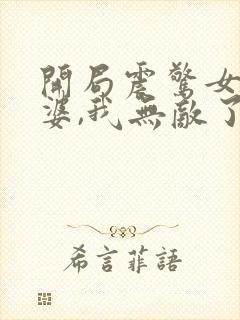 開局震驚女
婆,我無敵了
希言菲語